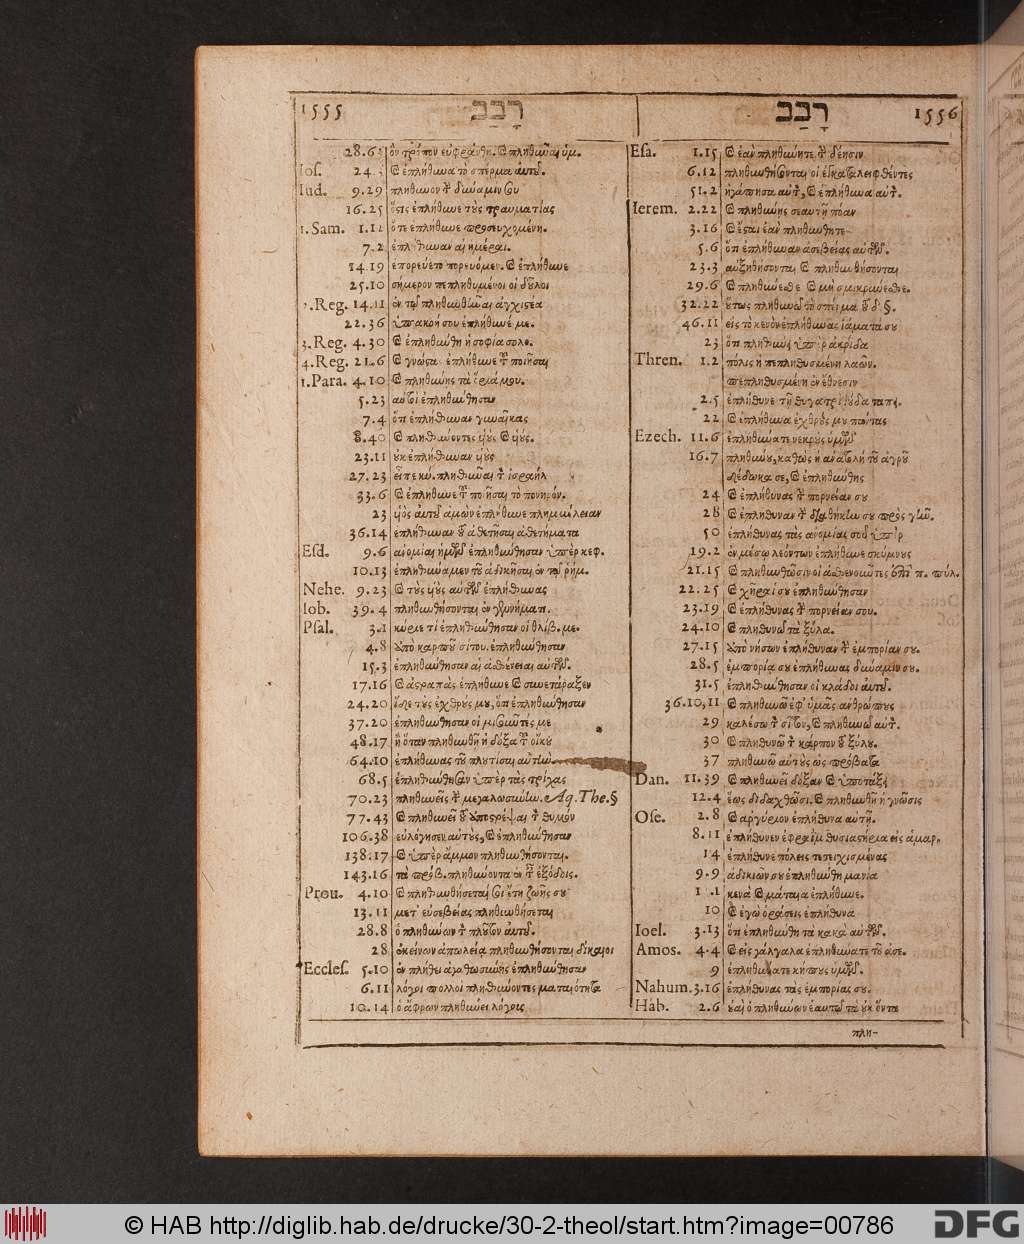 1555 רָבַב
רָבַב 1556
28.6 ὃν τρόπον εὐφράνθη. ἐπληθῦναι ὑμ.
Ios. 24. ἐπλήθυνα τὸ σπέρμα αὐτοῦ.
Iud. 9.29 πλήθυνον τὴν δύναμίν σου
16.25 ὅστις ἐπλήθυνε τοὺς τραυματίας
1.Sam. 1.12 ὅτε ἐπλήθυνε προσευχομένη.
7.2 ἐπλήθυναν αἱ ἡμέραι.
14.19 ἐπορεύετο πορευόμεν. καὶ ἐπλήθυνε
25.10 σήμερον πεπληθυμένοι οἱ δοῦλοι
2.Reg. 14.11 πληθυνθῆναι ἀγχιστέα
22.36 ὑπακοή σου ἐπλήθυνέ με.
3.Reg. 4.30 καὶ ἐπληθύνθη ἡ σοφία σολο.
4.Reg. 21.6 καὶ γνώστας ἐπλήθυνε τοῦ ποιῆσαι
1.Para. 4.10 καὶ πληθύνῃς τὰ ὅριά μου.
5.23 αὐτοὶ ἐπληθύνθησαν
7.4 ὅτι ἐπλήθυναν γυναῖκας
8.40 καὶ πληθύνοντες υἱοὺς καὶ υἱούς.
23.11 οὐκ ἐπλήθυναν υἱούς
27.23 εἶπε κύ. πληθῦναι τὸν ἰσραήλ
33.6 καὶ ἐπλήθυνε τοῦ ποιῆσαι τὸ πονηρόν.
23 υἱὸς αὐτοῦ ἀμὼν ἐπλήθυνε πλημμέλειαν
36.14 ἐπλήθυναν τοῦ ἀθετῆσαι ἀθετήματα
Esd. 9.6 ἀνομίαι ἡμῶν ἐπληθύνθησαν ὑπὲρ κεφ.
10.13 ἐπληθύναμεν τοῦ ἀδικῆσαι ἐν τῷ ῥήμ.
Nehe. 9.23 καὶ τοὺς υἱοὺς αὐτῶν ἐπλήθυνας
Iob. 39.4 πληθυνθήσονται ἐν γεννήματι.
Psal. 3.1 κύριε τί ἐπληθύνθησαν οἱ θλίβ. με.
4.8 ἀπὸ καρποῦ σίτου. ἐπληθύνθησαν
15.3 ἐπληθύνθησαν αἱ ἀσθένειαι αὐτῶν.
17.16 καὶ ἀστραπὰς ἐπλήθυνε καὶ συνετάραξεν
24.20 ἴδε τοὺς ἐχθρούς μου, ὅτι ἐπληθύνθησαν
37.20 ἐπληθύνθησαν οἱ μισοῦντές με
48.17 ἢ ὅταν πληθυνθῇ ἡ δόξα τοῦ οἴκου
64.10 ἐπλήθυνας τοῦ πλουτίσαι αὐτὴν
68.5 ἐπληθύνθησαν ὑπὲρ τὰς τρίχας
70.23 πληθυνεῖς τὴν μεγαλωσύνην. Aq. The.§
77.43 καὶ πληθυνεῖ τοῦ ἀποστρέψαι τὸν θυμὸν
106.38 εὐλόγησεν αὐτοὺς, καὶ ἐπληθύνθησαν
138.17 καὶ ὑπὲρ ἄμμον πληθυνθήσονται.
143.16 τὰ πρόβ. πληθύνοντα ἐν τ. ἐξόδοις.
Prou. 4.10 καὶ πληθυνθήσεταί σοι ἔτη ζωῆς σου
13.11 μετ᾽ εὐσεβείας πληθυνθήσεται
28.8 ὁ πληθύνων τὸν πλοῦτον αὐτοῦ.
28 ἐκείνων ἀπωλείᾳ πληθυνθήσονται δίκαιοι
Eccles. 5.10 ἐν πλήθει ἀγαθωσύνης ἐπληθύνθησαν
6.11 λόγοι πολλοὶ πληθύνοντες ματαιότητα
10.14 ὁ ἄφρων πληθύνει λόγους
Esa. 1.15 καὶ ἐὰν πληθύνητε τὴν δέησιν
6.12 πληθυνθήσονται οἱ ἐγκαταλειφθέντες
51.2 ἠγάπησα αὐτὸν, καὶ ἐπλήθυνα αὐτόν.
Ierem. 2.22 καὶ πληθύνῃς σεαυτῇ πόαν
3.16 καὶ ἔσται ἐὰν πληθυνθῆτε
5.6 ὅτι ἐπλήθυναν ἀσεβείας αὐτῶν.
23.3 αὐξηθήσονται καὶ πληθυνθήσονται
29.6 καὶ πληθύνεσθε καὶ μὴ σμικρύνεσθε.
32.22 οὕτως πληθυνῶ τὸ σπέρμα τοῦ δ. §.
46.11 εἰς τὸ κενὸν ἐπλήθυνας ἰάματά σου
23 ὅτι πληθύνει ὑπὲρ ἀκρίδα
Thren. 1.2 πόλις ἡ πεπληθυσμένη λαῶν.
πεπληθυσμένη ἐν ἔθνεσιν
2.5 ἐπλήθυνε τῇ θυγατρὶ ἰούδα ταπει.
22 καὶ ἐπλήθυνα ἐχθρούς μου πάντας
Ezech. 11.6 ἐπληθύνατε νεκροὺς ὑμῶν
16.7 πληθύνου, καθὼς ἡ ἀνατολὴ τοῦ ἀγροῦ
δέδωκά σε, καὶ ἐπληθύνθης
24 καὶ ἐπλήθυνας τὴν πορνείαν σου
28 καὶ ἐπλήθυναν τὴν διαθήκην σου πρὸς γῆν.
50 ἐπλήθυνας τὰς ἀνομίας σου ὑπὲρ
19.2 ἐν μέσῳ λεόντων ἐπλήθυνε σκύμνους
21.15 καὶ πληθυνθῶσιν οἱ ἀσθενοῦντες ἐπὶ π. πύλ.
22.25 καὶ χῆραί σου ἐπληθύνθησαν
23.19 καὶ ἐπλήθυνας τὴν πορνείαν σου.
24.10 καὶ πληθυνῶ τὰ ξύλα.
27.15 ἀπὸ νήσων ἐπλήθυναν τὴν ἐμπορίαν σου.
28.5 ἐμπορίᾳ σου ἐπλήθυνας δύναμίν σου.
31.5 ἐπληθύνθησαν οἱ κλάδοι αὐτοῦ.
36.10,11 καὶ πληθυνῶ ἐφ᾽ ὑμᾶς ἀνθρώπους
29 καλέσω τὸν σῖτον, καὶ πληθυνῶ αὐτόν.
30 καὶ πληθυνῶ τὸν καρπὸν τοῦ ξύλου.
37 πληθυνῶ αὐτοὺς ὡς πρόβατα
Dan. 11.39 καὶ πληθυνεῖ δόξαν καὶ ὑποτάξει
12.4 ἕως διδαχθῶσι. καὶ πληθυνθῇ ἡ γνῶσις
Ose. 2.8 καὶ ἀργύριον ἐπλήθυνα αὐτῇ.
8.11 ἐπλήθυνεν ἐφραῒμ θυσιαστήρια εἰς ἁμαρ.
14 ἐπλήθυνε πόλεις τετειχισμένας
9.9 ἀδικιῶν σου ἐπληθύνθη μανία
.1 κενὰ καὶ μάταια ἐπλήθυνε.
10 καὶ ἐγὼ ὁράσεις ἐπλήθυνα
Ioel. 3.13 ὅτι ἐπληθύνθη τὰ κακὰ αὐτῶν.
Amos. 4.4 καὶ εἰς γάλγαλα ἐπληθύνατε τοῦ ἀσε.
9 ἐπληθύνατε κήπους ὑμῶν.
Nahum. 3.16 ἐπλήθυνας τὰς ἐμπορίας σου.
Hab. 2.6 οὐαὶ ὁ πληθύνων ἑαυτῷ τὰ οὐκ ὄντα
πλη-
© HAB http://diglib.hab.de/drucke/30-2-theol/start.htm?image=00786
DFG